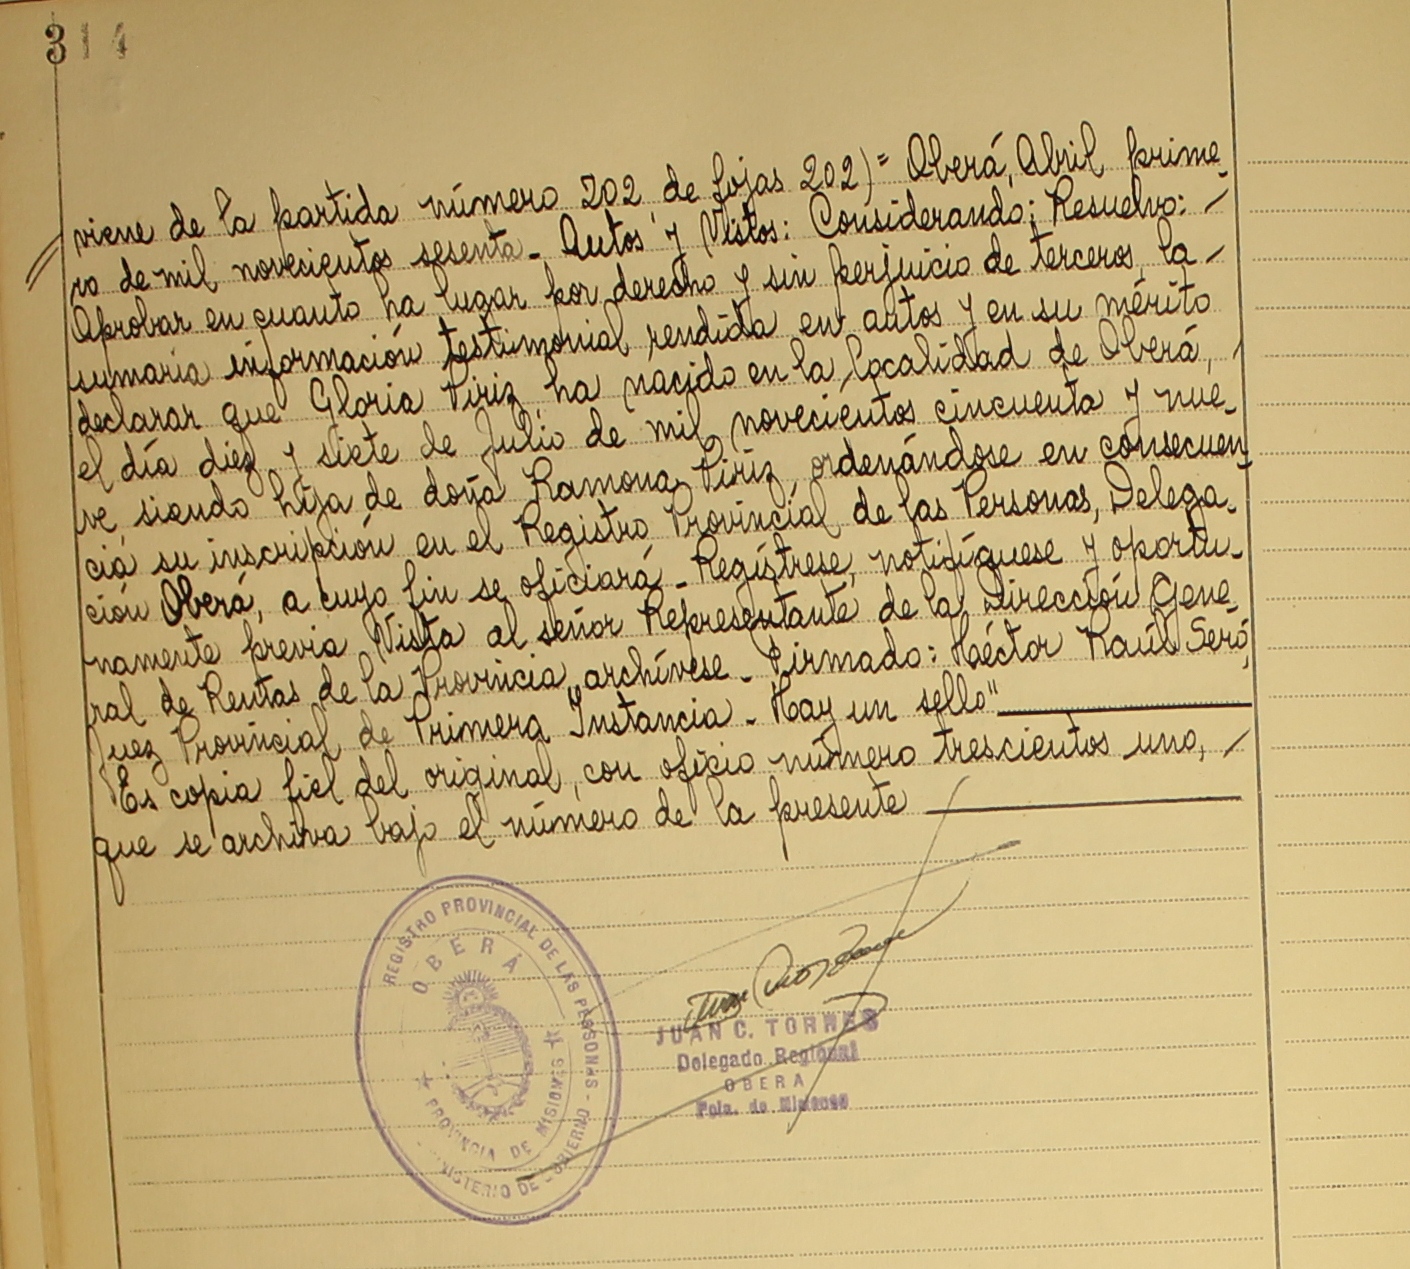 314
viene de la partida número 202 de fojas 202)= Oberá, Abril prime-
ro de mil novecientos sesenta_ Autos y Vistos: Considerando; Resuelvo: -
Aprobar en cuanto ha lugar por derecho y sin perjuicio de terceros, la -
sumaria información testimonial rendida en autos y en su mérito
declarar que Gloria Piriz ha nacido en la localidad de Oberá, -
el día diez y siete de Julio de mil novecientos cincuenta y nue-
ve, siendo hija de doña Ramona Piriz, ordenándose en consecuen
cia su inscripción en el Registro Provincial de las Personas, Delega-
ción Oberá, a cuyo fin se oficiará_ Regístrese, notifíquese y oportu-
namente previa Vista al señor Representante de la Dirección Gene
ral de Rentas de la Provincia, archívese_ Firmado: Héctor Raúl Seró,
Juez Provincial de Primera Instancia_ Hay un sello"
Es copia fiel del original, con oficio número trescientos uno, -
que se archiva bajo el número de la presente
REGISTRO PROVINCIAL DE LAS PERSONAS - MINISTERIO DE GOBIERNO
OBERÁ
PROVINCIA DE MISIONES
JUAN C. TORRES
Delegado Regional
OBERA
Pcia. de Misiones